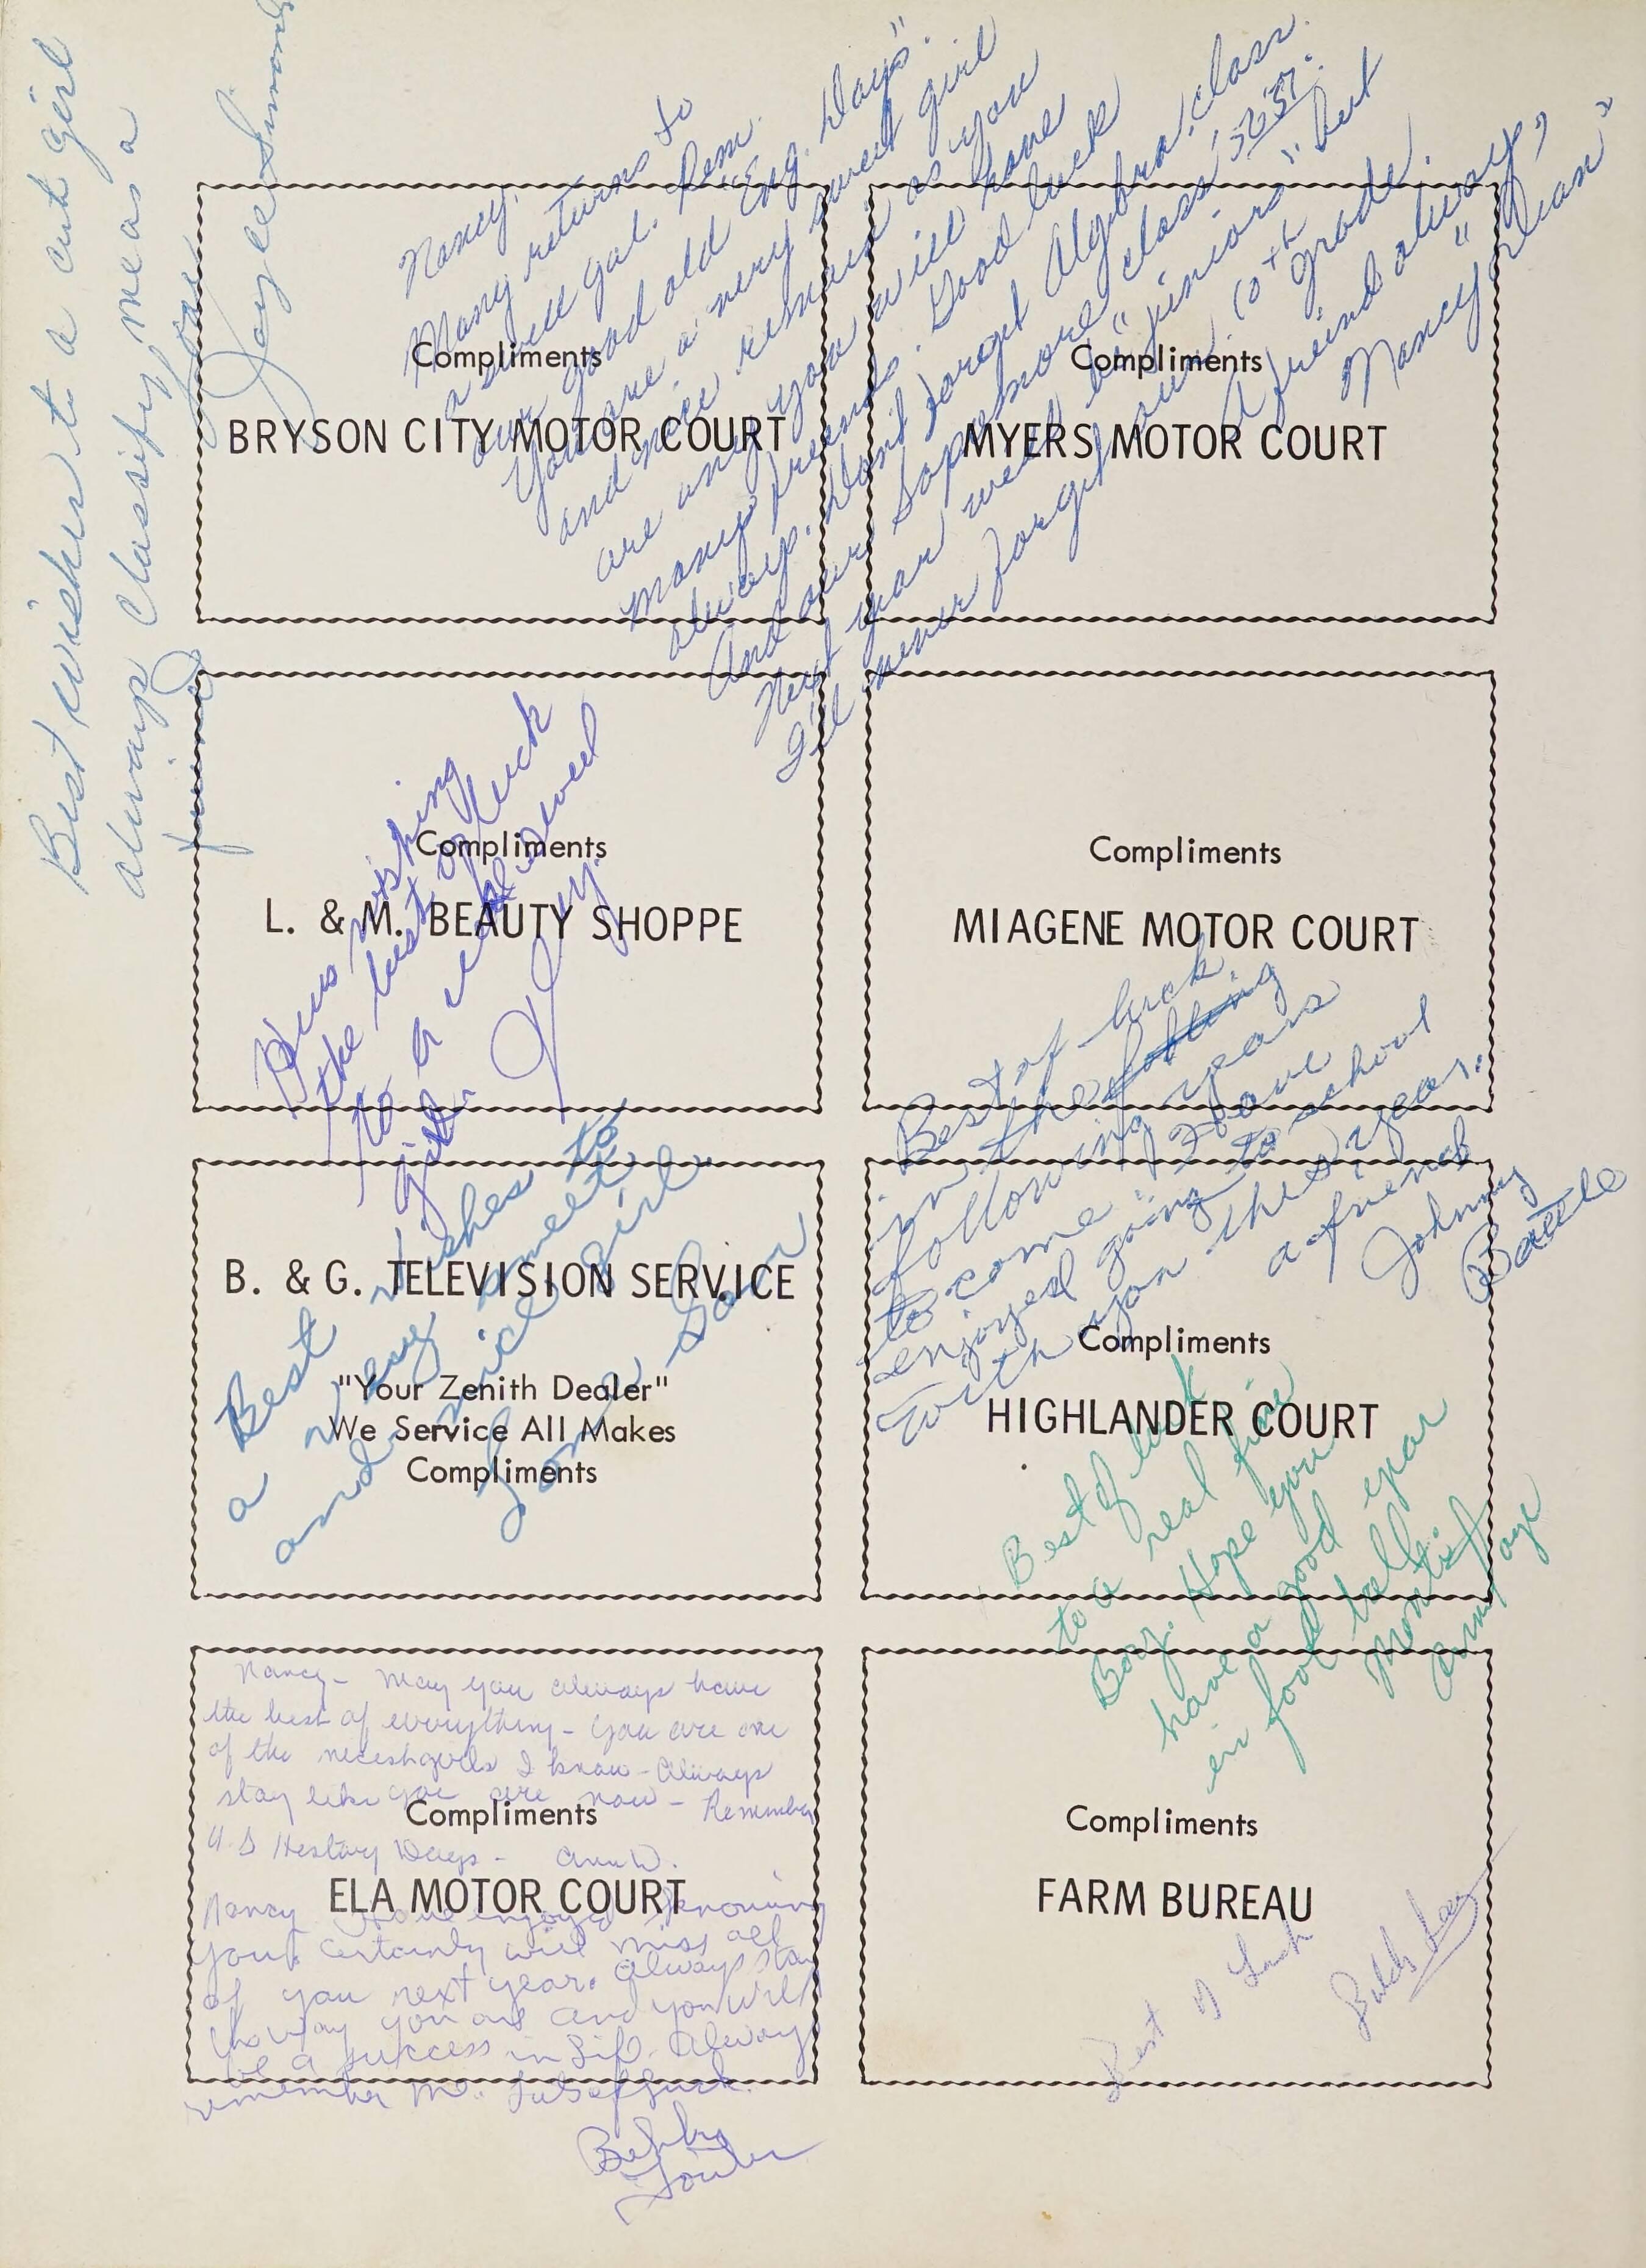 Best wishes to a cut girl
always Classify me as a
friend
Love
Joyce Simonds
Nancy,
Many returns to
a swell gal. Rem.
our good old "Eng. Days".
You are a very sweet girl
and nice remain as you
are and you will have
many freinds. Good luck
always. Don't forget Algebra! class.
And our Sophomore class '56 '57.
Next year we'll be "juniors" but
I'll never forget our 10th grade.
A freind always,
"Nancy Jean"
Compliments
BRYSON CITY MOTOR COURT
Compliments
MYERS MOTOR COURT
Heres wishing
the best of luck
to a well liked
girl.
Compliments
L. & M. BEAUTY SHOPPE
Compliments
MIAGENE MOTOR COURT
Best of luck
in the
following years
to come. I Have
enjoyed going to school
with you this year.
a friend
Johnny
Battle
Best wishes to
a very sweet
and nice girl.
B. & G. TELEVISION SERVICE
"Your Zenith Dealer"
We Service All Makes
Compliments
Compliments
HIGHLANDER COURT
Best of luck
to a real fine
Boy. Hope you
have a good year
in foot ball.
Nancy - May you always have
the best of everything - you are one
of the nicest girls I know - Always
stay like you are now - Remember
U.S History Days - Ann W.
Compliments
ELA MOTOR COURT
Nancy I have enjoyed knowing
you & certainly will miss all
of you next year. Always stay
the way you are and you will
be a success in life. Always
remember me. Lots of luck.
Bobby
Compliments
FARM BUREAU
Best of Luck